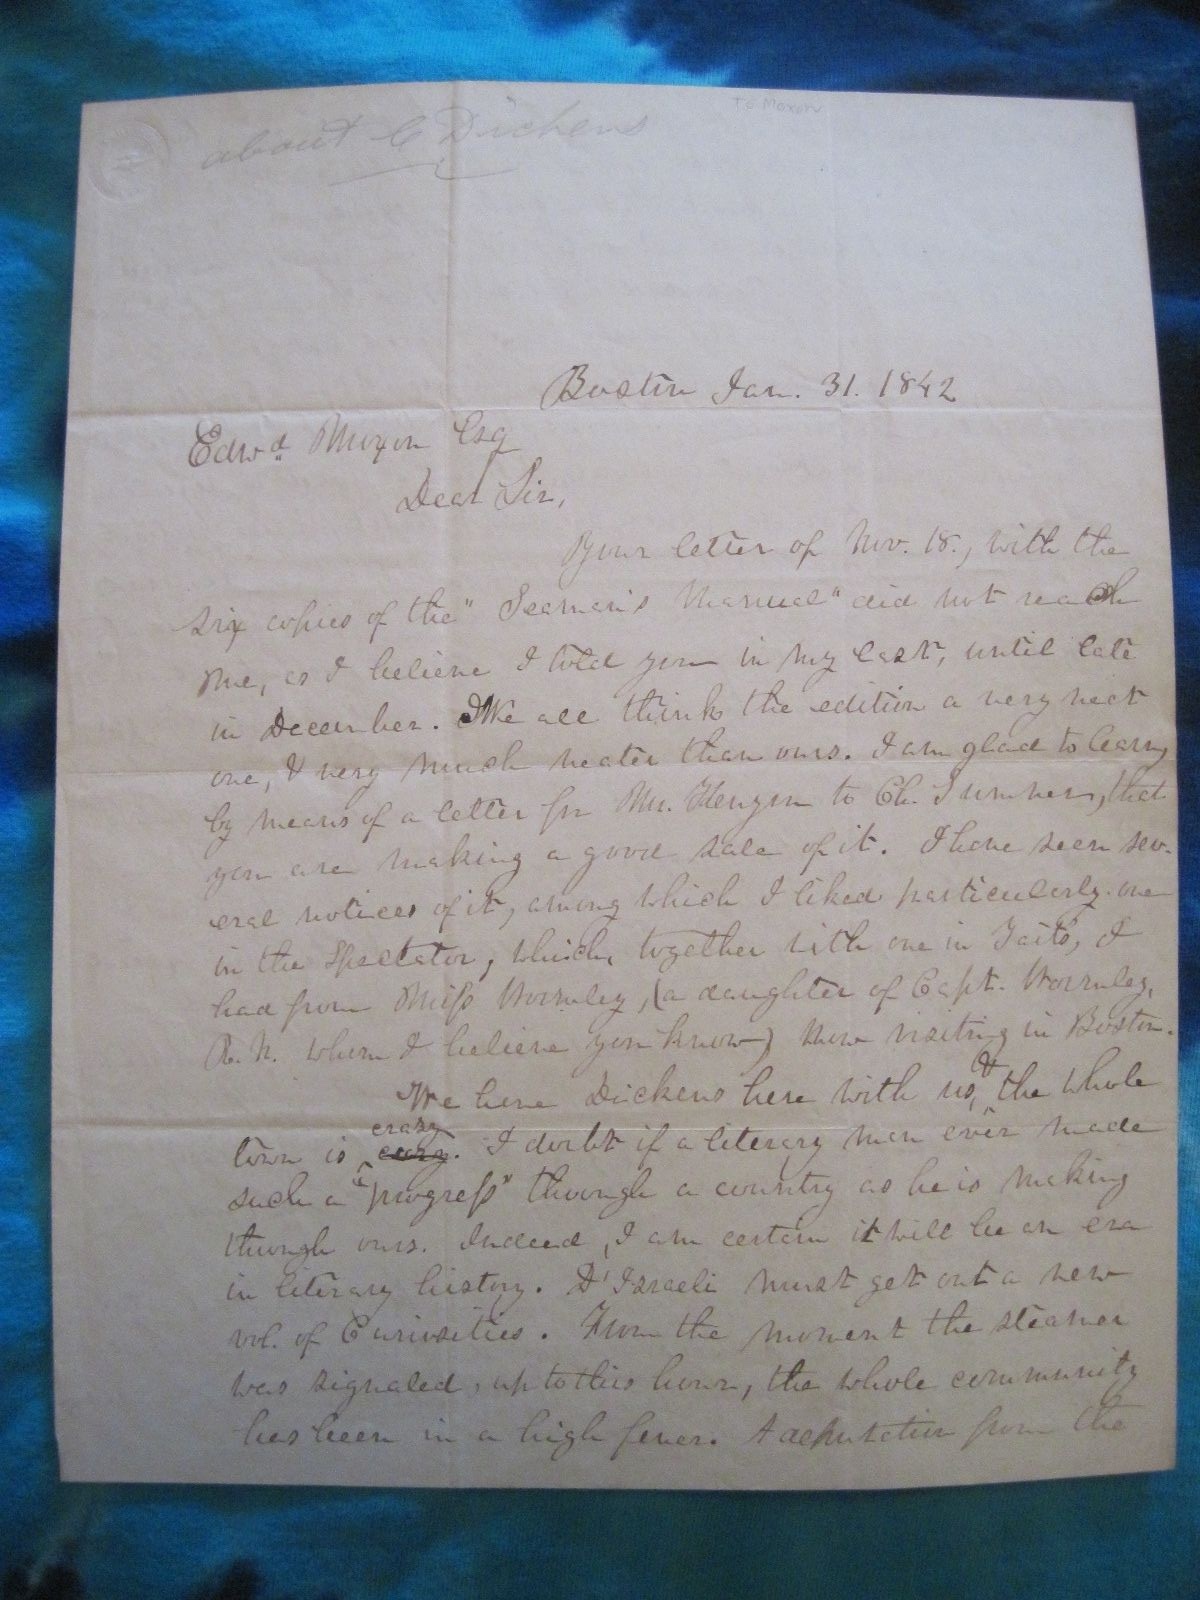 To Moxon
about C Dickens
Boston Jan. 31. 1842
Edwd. Moxon Esq
Dear Sir,
Your letter of Nov. 18., with the
six copies of the "Seaman's Manual" did not reach
me, as I believe I told you in my last, until late
in December. We all think the edition a very neat
one, & very much neater than ours. I am glad to learn,
by means of a letter fm Mr. Kenyon to Ch. Sumner, that
you are making a good sale of it. I have seen sev-
eral notices of it, among which I liked particularly one
in the Spectator, which, together with one in Tait's, I
had from Miss Wormley, (a daughter of Capt. Wormley,
R. N. whom I believe you know) now visiting in Boston.
We have Dickens here with us, & the whole
town is crazy. I doubt if a literary man ever made
such a "progress" through a country as he is making
through ours. Indeed, I am certain it will be an era
in literary history. D'Israeli must get out a new
vol. of Curiosities. From the moment the steamer
was signaled, up to this hour, the whole community
has been in a high fever. A deputation from the